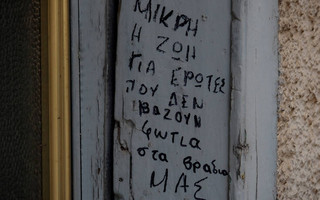 ΜΙΚΡΗ
Η ΖΩΗ
ΓΙΑ ΕΡΩΤΕΣ
ΠΟΥ ΔΕΝ
ΒΑΖΟΥΝ
φωτια
στα βραδια
ΜΑΣ